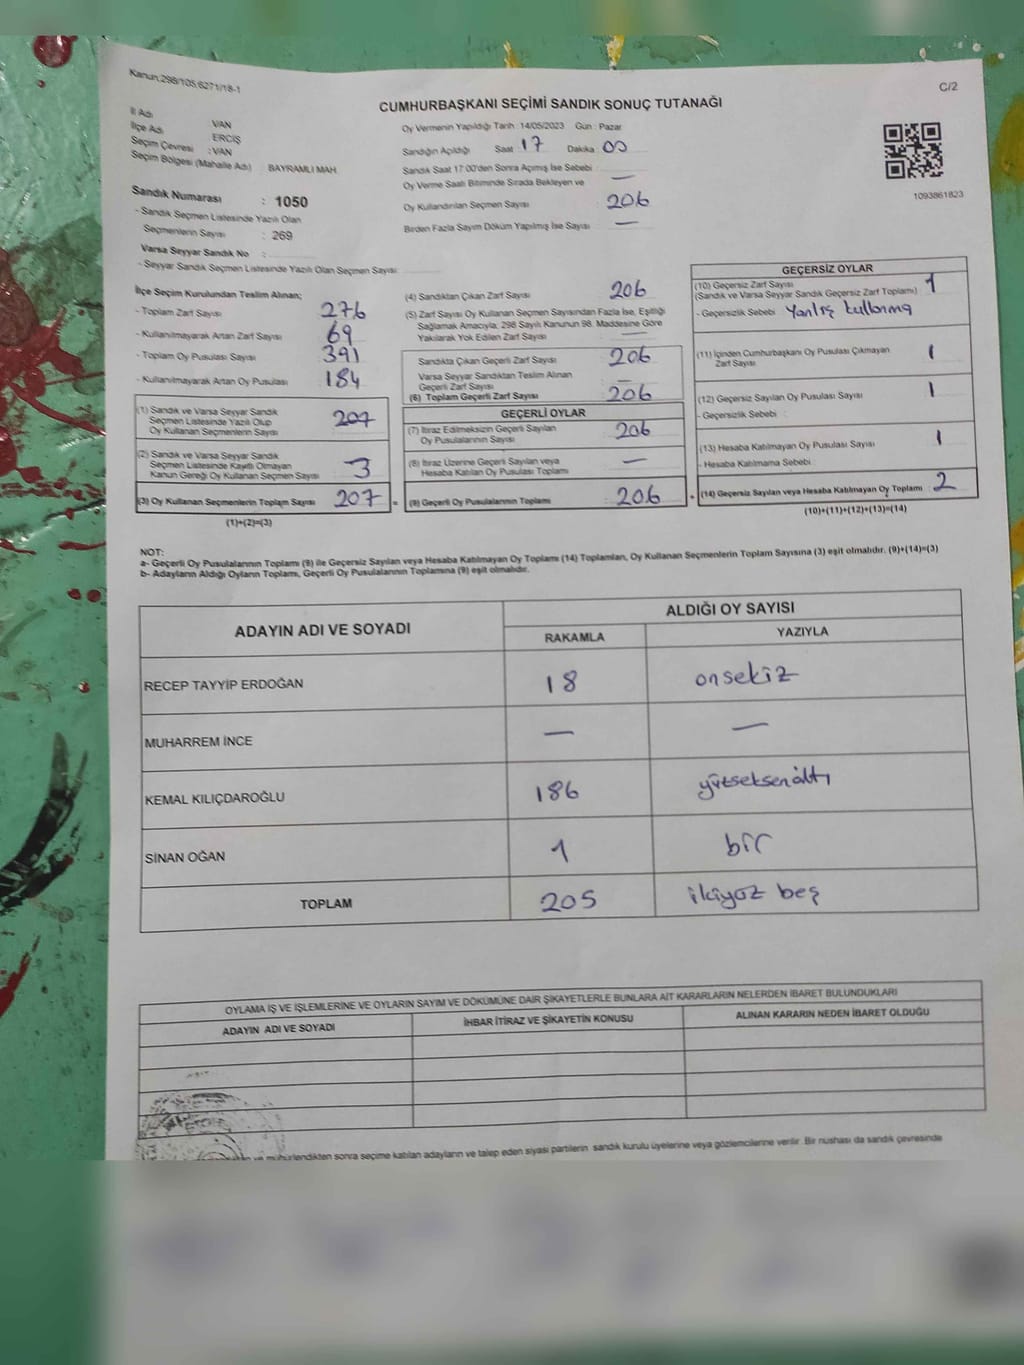 Kanun;298/105;6271/18-1
C/2
CUMHURBAŞKANI SEÇİMİ SANDIK SONUÇ TUTANAĞI
İl Adı VAN
İlçe Adı ERCİŞ
Seçim Çevresi : VAN
Seçim Bölgesi (Mahalle Adı) : BAYRAMLI MAH.
Oy Vermenin Yapıldığı Tarih : 14/05/2023 Gün : Pazar
Sandığın Açıldığı Saat 17 Dakika 00
Sandık Saat 17:00'den Sonra Açımış İse Sebebi : —
Oy Verme Saati Bitiminde Sırada Bekleyen ve
Oy Kullandırılan Seçmen Sayısı : 206
Birden Fazla Sayım Döküm Yapılmış İse Sayısı : —
1093861823
Sandık Numarası : 1050
- Sandık Seçmen Listesinde Yazılı Olan
Seçmenlerin Sayısı : 269
Varsa Seyyar Sandık No :
- Seyyar Sandık Seçmen Listesinde Yazılı Olan Seçmen Sayısı:
İlçe Seçim Kurulundan Teslim Alınan;
- Toplam Zarf Sayısı : 276
- Kullanılmayarak Artan Zarf Sayısı : 69
- Toplam Oy Pusulası Sayısı : 391
- Kullanılmayarak Artan Oy Pusulası : 184
(1) Sandık ve Varsa Seyyar Sandık
Seçmen Listesinde Yazılı Olup
Oy Kullanan Seçmenlerin Sayısı 207
(2) Sandık ve Varsa Seyyar Sandık
Seçmen Listesinde Kayıtlı Olmayan
Kanun Gereği Oy Kullanan Seçmen Sayısı 3
(3) Oy Kullanan Seçmenlerin Toplam Sayısı 207 =
(1)+(2)=(3)
(4) Sandıktan Çıkan Zarf Sayısı : 206
(5) Zarf Sayısı Oy Kullanan Seçmen Sayısından Fazla İse, Eşitliği
Sağlamak Amacıyla; 298 Sayılı Kanunun 98. Maddesine Göre
Yakılarak Yok Edilen Zarf Sayısı : —
Sandıkta Çıkan Geçerli Zarf Sayısı : 206
Varsa Seyyar Sandıktan Teslim Alınan
Geçerli Zarf Sayısı : —
(6) Toplam Geçerli Zarf Sayısı : 206
GEÇERLİ OYLAR
(7) İtiraz Edilmeksizin Geçerli Sayılan
Oy Pusulalarının Sayısı : 206
(8) İtiraz Üzerine Geçerli Sayılan veya
Hesaba Katılan Oy Pusulası Toplamı : —
(9) Geçerli Oy Pusulalarının Toplamı : 206 +
GEÇERSİZ OYLAR
(10) Geçersiz Zarf Sayısı
(Sandık ve Varsa Seyyar Sandık Geçersiz Zarf Toplamı) : 1
- Geçersizlik Sebebi : Yanlış kullanma
(11) İçinden Cumhurbaşkanı Oy Pusulası Çıkmayan
Zarf Sayısı : 1
(12) Geçersiz Sayılan Oy Pusulası Sayısı : 1
- Geçersizlik Sebebi :
(13) Hesaba Katılmayan Oy Pusulası Sayısı : 1
- Hesaba Katılmama Sebebi
(14) Geçersiz Sayılan veya Hesaba Katılmayan Oy Toplamı : 2
(10)+(11)+(12)+(13)=(14)
NOT:
a- Geçerli Oy Pusulalarının Toplamı (9) ile Geçersiz Sayılan veya Hesaba Katılmayan Oy Toplamı (14) Toplamları, Oy Kullanan Seçmenlerin Toplam Sayısına (3) eşit olmalıdır. (9)+(14)=(3)
b- Adayların Aldığı Oyların Toplamı, Geçerli Oy Pusulalarının Toplamına (9) eşit olmalıdır.
ADAYIN ADI VE SOYADI ALDIĞI OY SAYISI
RAKAMLA YAZIYLA
RECEP TAYYİP ERDOĞAN 18 onsekiz
MUHARREM İNCE — —
KEMAL KILIÇDAROĞLU 186 yüzseksenaltı
SİNAN OĞAN 1 bir
TOPLAM 205 ikiyüz beş
OYLAMA İŞ VE İŞLEMLERİNE VE OYLARIN SAYIM VE DÖKÜMÜNE DAİR ŞİKAYETLERLE BUNLARA AİT KARARLARIN NELERDEN İBARET BULUNDUKLARI
ADAYIN ADI VE SOYADI İHBAR İTİRAZ VE ŞİKAYETİN KONUSU ALINAN KARARIN NEDEN İBARET OLDUĞU
ve mühürlendikten sonra seçime katılan adayların ve talep eden siyasi partilerin sandık kurulu üyelerine veya gözlemcilerine verilir. Bir nushası da sandık çevresinde